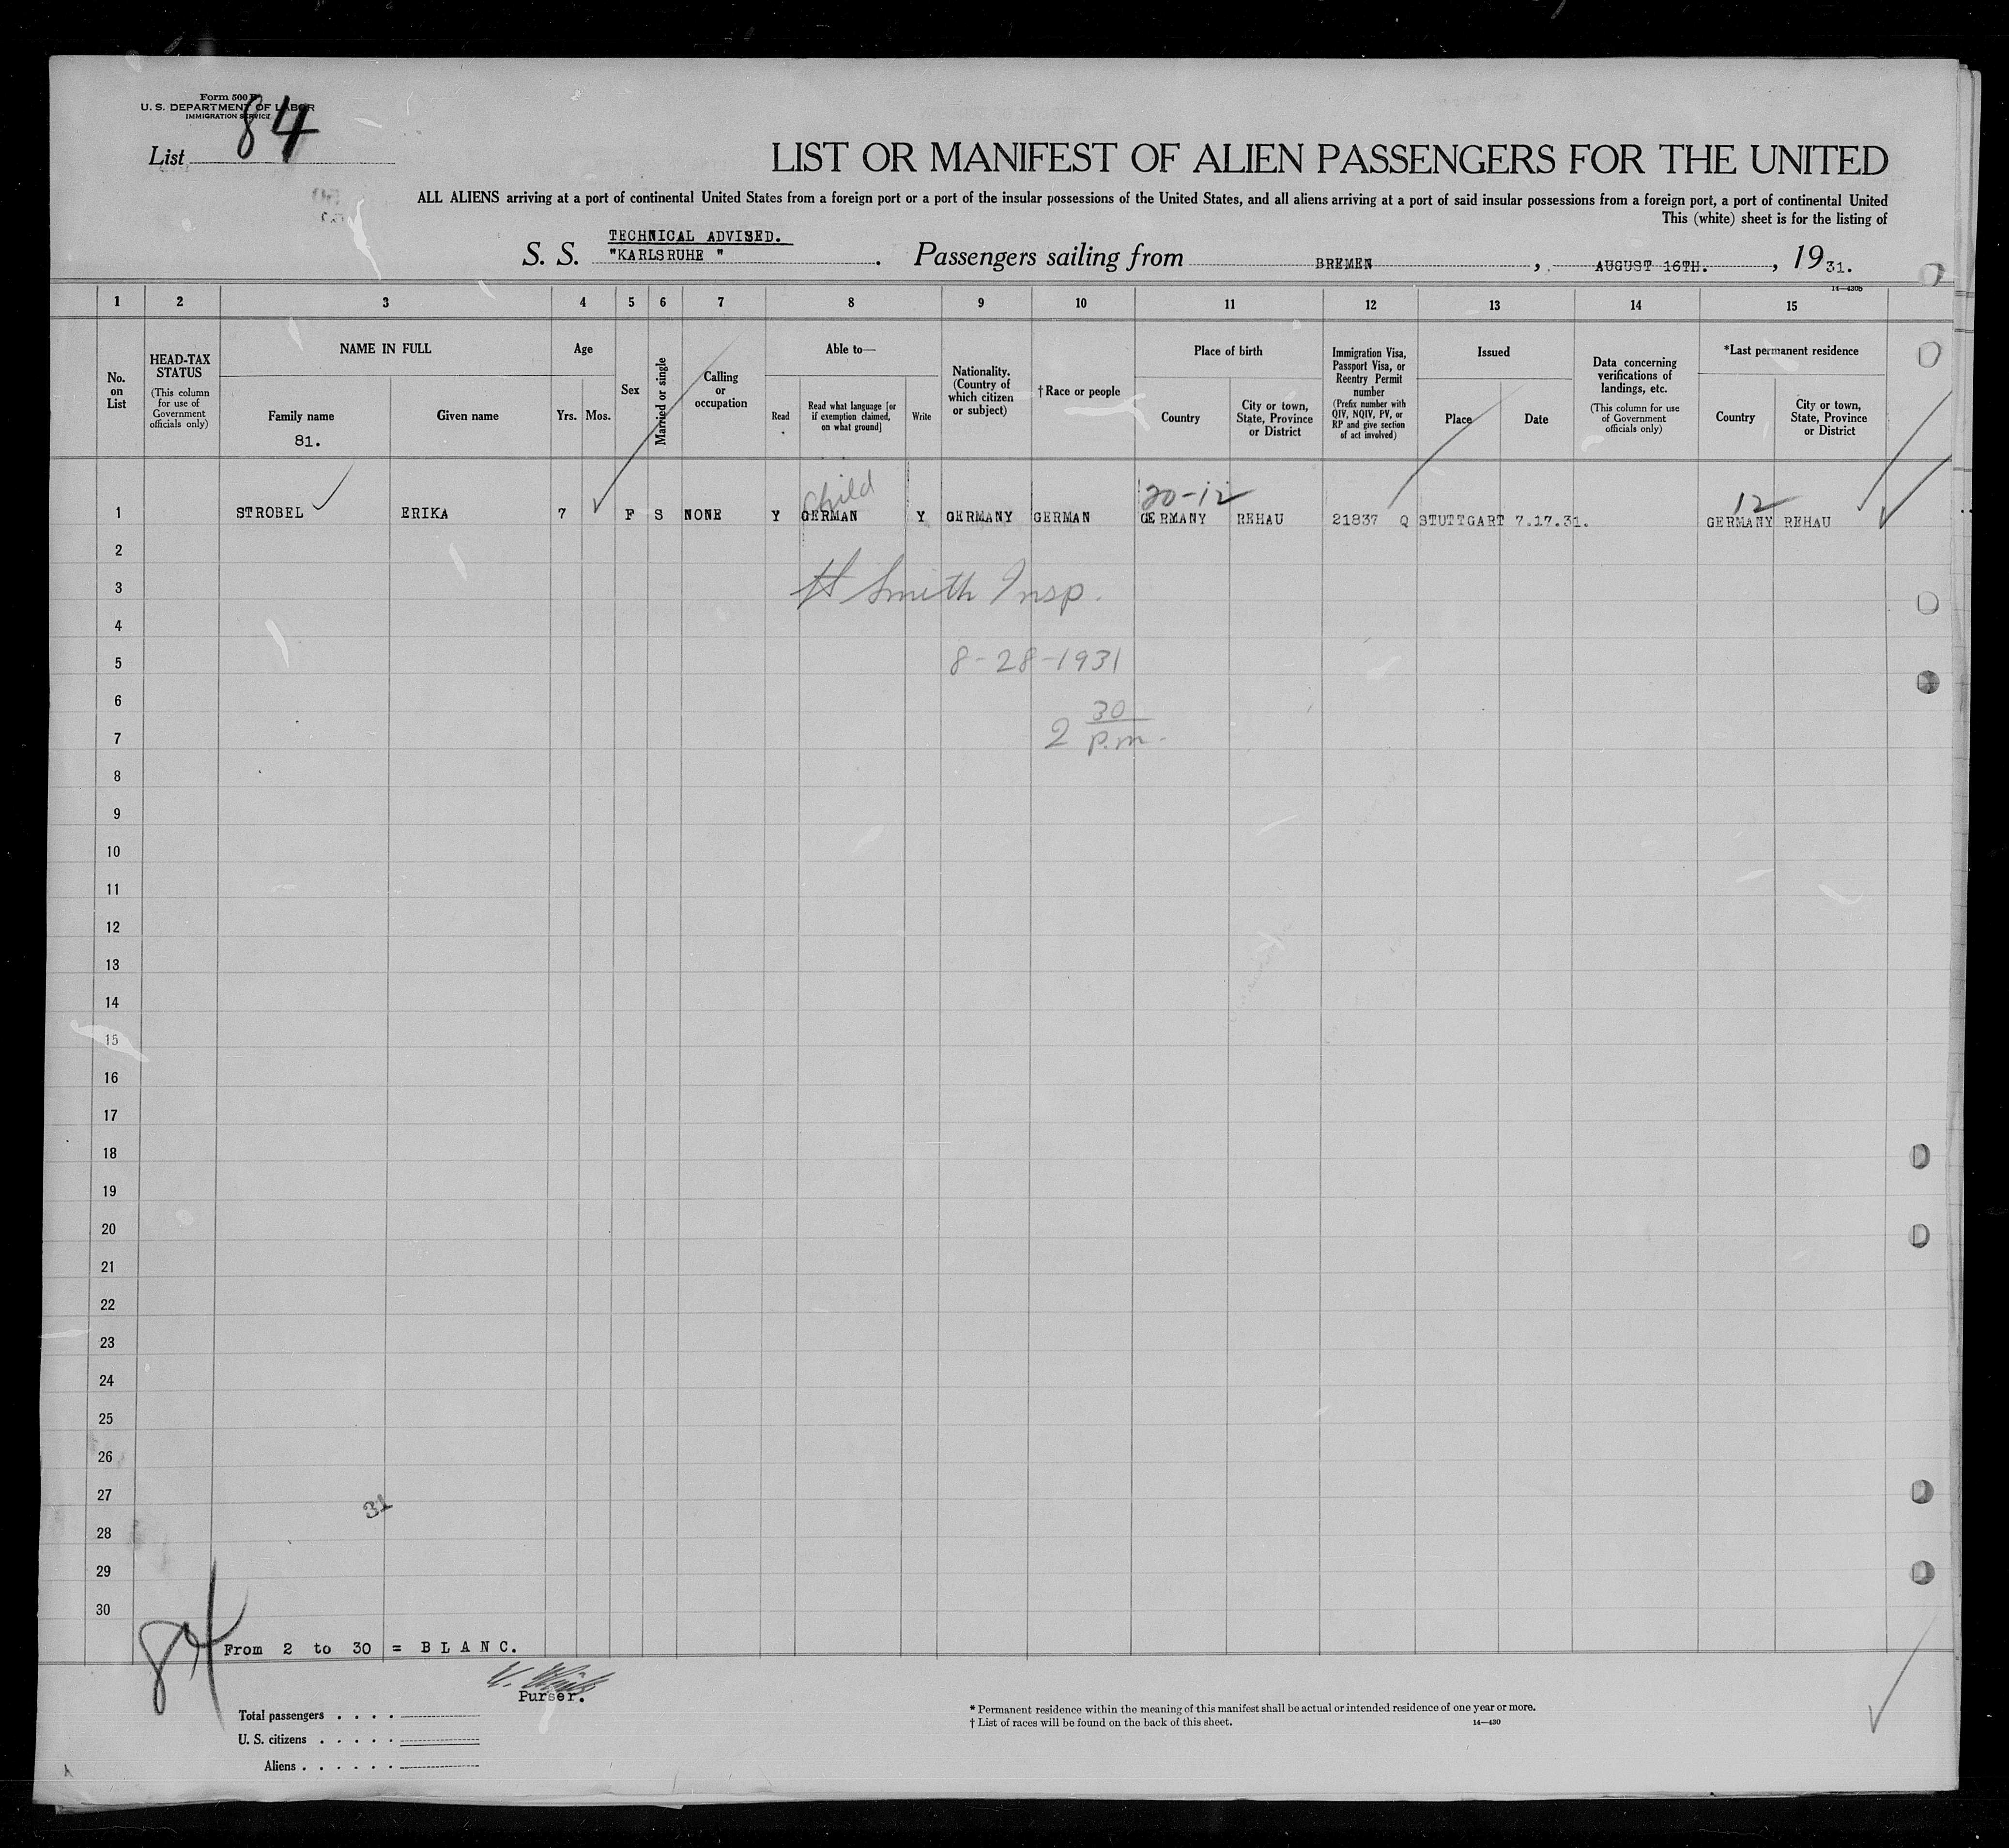 Form 500
U. S. DEPARTMENT OF LABOR
IMMIGRATION SERVICE
List 84
LIST OR MANIFEST OF ALIEN PASSENGERS FOR THE UNITED
ALL ALIENS arriving at a port of continental United States from a foreign port or a port of the insular possessions of the United States, and all aliens arriving at a port of said insular possessions from a foreign port, a port of continental United
This (white) sheet is for the listing of
TECHNICAL ADVISED.
S. S. "KARLSRUHE " . Passengers sailing from BREMEN , AUGUST 16TH. , 19 31.
14—430b
1 2 3 4 5 6 7 8 9 10 11 12 13 14 15
No. on List
HEAD-TAX STATUS (This column for use of Government officials only)
NAME IN FULL
Family name
81.
Given name
Age
Yrs. Mos.
Sex
Married or single
Calling or occupation
Able to—
Read
Read what language [or if exemption claimed, on what ground]
Write
Nationality. (Country of which citizen or subject)
† Race or people
Place of birth
Country
City or town, State, Province or District
Immigration Visa, Passport Visa, or Reentry Permit number (Prefix number with QIV, NQIV, PV, or RP and give section of act involved)
Issued
Place
Date
Data concerning verifications of landings, etc. (This column for use of Government officials only)
*Last permanent residence
Country
City or town, State, Province or District
Child 20-12 12
1 STROBEL ERIKA 7 F S NONE Y GERMAN Y GERMANY GERMAN GERMANY REHAU 21837 Q STUTTGART 7.17.31. GERMANY REHAU
2
3 H Smith Insp.
4
5 8-28-1931
6
7 2 30 p.m.
8
9
10
11
12
13
14
15
16
17
18
19
20
21
22
23
24
25
26
27 31
28
29
30
84 From 2 to 30 = B L A N C.
Purser.
Total passengers . . . .
U. S. citizens . . . . .
Aliens . . . . . .
* Permanent residence within the meaning of this manifest shall be actual or intended residence of one year or more.
† List of races will be found on the back of this sheet. 14—430